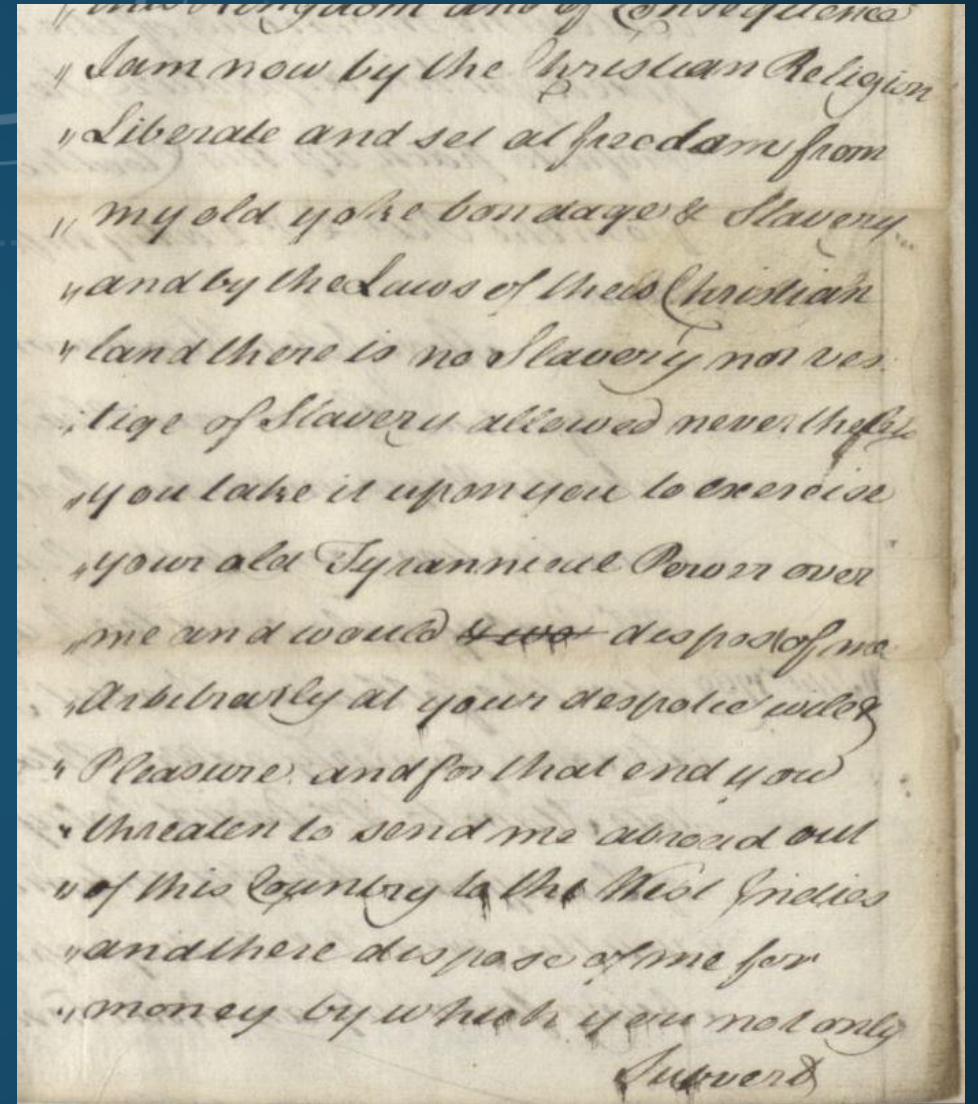 Kingdom and of Consequence
" I am now by the Christian Religion
" Liberate and set at freedom from
" my old yoke bondage & Slavery
" and by the Laws of this Christian
" land there is no Slavery nor ves
" tige of Slavery allowed nevertheless
" you take it upon you to exercise
" your old Tyrannical Power over
" me and would dispose of me
" Arbitrarly at your despotic will &
" Pleasure and for that end you
" threaten to send me abroad out
" of this Country to the West Indies
" and there dispose of me for
" money by which you not only
Subvert